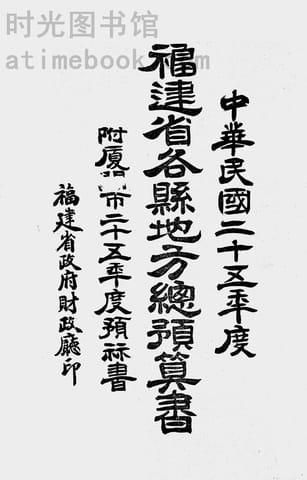 时光图书馆
atimebook.com
中華民國二十五年度
福建省各縣地方總預算書
附廈門市二十五年度預祘書
福建省政府財政廳印